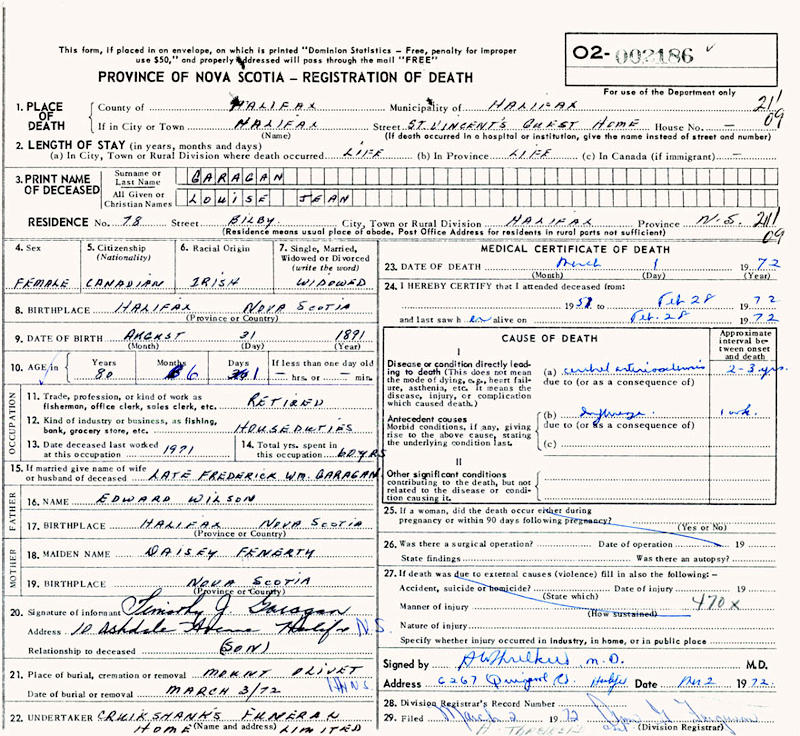 This form, if placed in an envelope, on which is printed "Dominion Statistics – Free, penalty for improper
use $50," and properly addressed will pass through the mail "FREE"
O2- 002186
PROVINCE OF NOVA SCOTIA – REGISTRATION OF DEATH
For use of the Department only
1. PLACE OF DEATH
County of HALIFAX Municipality of HALIFAX 211
If in City or Town HALIFAX Street ST. VINCENT'S GUEST HOME House No. – 09
(Name) (If death occurred in a hospital or institution, give the name instead of street and number)
2. LENGTH OF STAY (in years, months and days)
(a) In City, Town or Rural Division where death occurred LIFE (b) In Province LIFE (c) In Canada (if immigrant) –
3. PRINT NAME OF DECEASED
Surname or Last Name GARAGAN
All Given or Christian Names LOUISE JEAN
RESIDENCE No. 78 Street BILBY City, Town or Rural Division HALIFAX Province N.S. 211
(Residence means usual place of abode. Post Office Address for residents in rural parts not sufficient) 09
4. Sex FEMALE
5. Citizenship (Nationality) CANADIAN
6. Racial Origin IRISH
7. Single, Married, Widowed or Divorced (write the word) WIDOWED
8. BIRTHPLACE HALIFAX NOVA SCOTIA
(Province or Country)
9. DATE OF BIRTH AUGUST 31 1891
(Month) (Day) (Year)
10. AGE in Years 80 Months 6 Days 1 If less than one day old – hrs. or – min.
OCCUPATION
11. Trade, profession, or kind of work as fisherman, office clerk, sales clerk, etc. RETIRED
12. Kind of industry or business, as fishing, bank, grocery store, etc. HOUSEDUTIES
13. Date deceased last worked at this occupation 1971
14. Total yrs. spent in this occupation 60 YRS
15. If married give name of wife or husband of deceased LATE FREDERICK WM. GARAGAN
FATHER
16. NAME EDWARD WILSON
17. BIRTHPLACE HALIFAX NOVA SCOTIA
(Province or Country)
MOTHER
18. MAIDEN NAME DAISEY FENERTY
19. BIRTHPLACE NOVA SCOTIA
(Province or Country)
20. Signature of informant Timothy J. Garagan
Address 10 Ashdale Avenue Halifax N.S.
Relationship to deceased (SON)
21. Place of burial, cremation or removal MOUNT OLIVET
Date of burial or removal MARCH 3/72
22. UNDERTAKER CRUIKSHANKS FUNERAL
HOME (Name and address) LIMITED
MEDICAL CERTIFICATE OF DEATH
23. DATE OF DEATH March 1 1972
(Month) (Day) (Year)
24. I HEREBY CERTIFY that I attended deceased from:
1951 to Feb 28 1972
and last saw her alive on Feb. 28 1972
CAUSE OF DEATH
Approximate interval between onset and death
I
Disease or condition directly leading to death (This does not mean the mode of dying, e.g., heart failure, asthenia, etc. It means the disease, injury, or complication which caused death.)
(a) cerebral arteriosclerosis 2-3 yrs.
due to (or as a consequence of)
Antecedent causes
Morbid conditions, if any, giving rise to the above cause, stating the underlying condition last.
(b) 1 wk.
due to (or as a consequence of)
(c)
II
Other significant conditions contributing to the death, but not related to the disease or condition causing it.
25. If a woman, did the death occur either during pregnancy or within 90 days following pregnancy?
(Yes or No)
26. Was there a surgical operation? Date of operation 19
State findings Was there an autopsy?
27. If death was due to external causes (violence) fill in also the following: –
Accident, suicide or homicide? Date of injury 19
(State which)
Manner of injury 470X
(How sustained)
Nature of injury
Specify whether injury occurred in industry, in home, or in public place
Signed by M.D. M.D.
Address 6267 Halifax Date Mar 2 1972.
28. Division Registrar's Record Number
29. Filed March 2 1972
(Division Registrar)